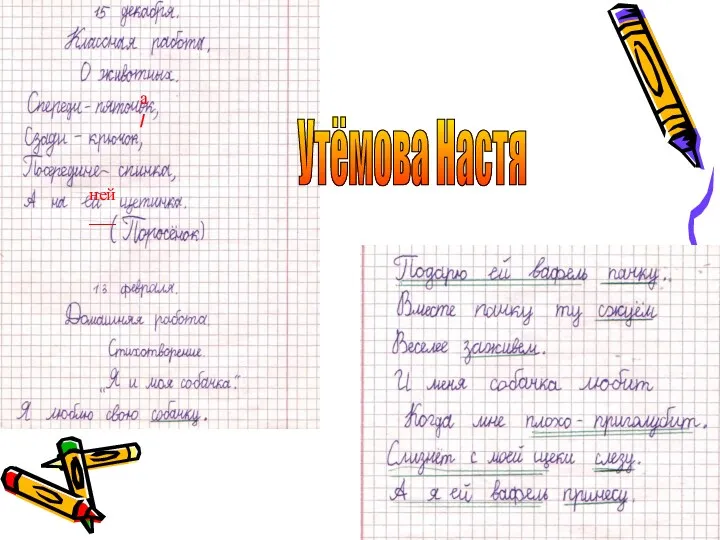 15 декабря.
Классная работа.
О животных.
Спереди - пяточок,
а
Сзади - крючок,
Посередине - спинка,
А на ей щетинка.
ней
(Поросёнок)
13 февраля.
Домашняя работа.
Стихотворение.
„Я и моя собачка".
Я люблю свою собачку.
Утёмова Настя
Подарю ей вафель пачку.
Вместе пачку ту сжуём
Веселее заживем.
И меня собачка любит
Когда мне плохо - приголубит.
Слизнёт с моей щеки слезу.
А я ей вафель принесу.